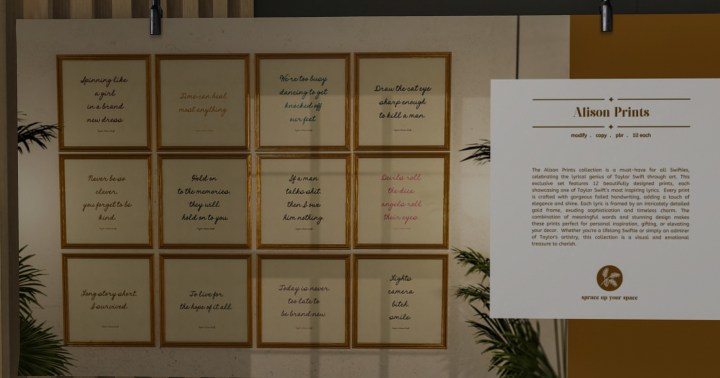 Spinning like
a girl
in a brand
new dress
Time can heal
most anything
We're too busy
dancing to get
knocked off
our feet
Draw the cat eye
sharp enough
to kill a man
Never be so
clever
you forget to be
kind
Hold on
to the memories
they will
hold on to you
If a man
talks shit
then I owe
him nothing
Fools roll
the dice
angels roll
their eyes
Long story short
I survived
To live for
the hope of it all
Today is never
too late to
be brand new
Lights
camera
bitch
smile
Alison Prints
modify . copy . pbr . 10 each
The Alison Prints collection is a must-have for all Swifties,
celebrating the lyrical genius of Taylor Swift through art. This
exclusive set features 12 beautifully designed prints, each
showcasing one of Taylor Swift's most inspiring lyrics. Every print
is crafted with gorgeous foiled handwriting, adding a touch of
elegance and shine. Each lyric is framed by an intricately detailed
gold frame, exuding sophistication and timeless charm. The
combination of meaningful words and stunning design makes
these prints perfect for personal inspiration, gifting, or elevating
your decor. Whether you're a lifelong Swiftie or simply an admirer
of Taylor's artistry, this collection is a visual and emotional
treasure to cherish.
spruce up your space